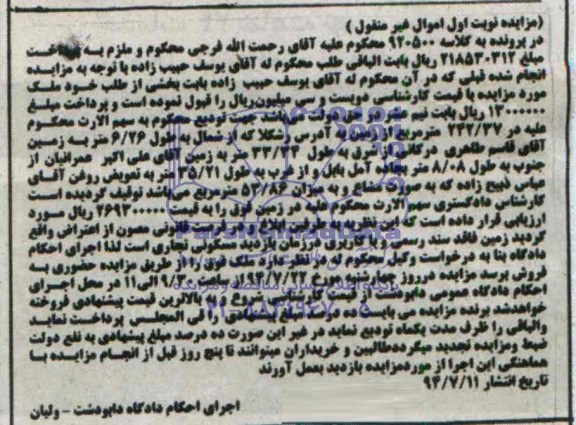 (مزایده نوبت اول اموال غیر منقول)
در پرونده به کلاسه ۹۲۰۵۰۰ محکوم علیه آقای رحمت الله فرجی محکوم و ملزم به پرداخت
مبلغ ۲۱۸۵۳۰۳۱۲ ریال بابت الباقی طلب محکوم له آقای یوسف حبیب زاده با توجه به مزایده
انجام شده قبلی که در آن محکوم له آقای یوسف حبیب زاده بابت بخشی از طلب خود ملک
مورد مزایده با قیمت کارشناسی دویست و سی میلیون ریال را قبول نموده است و پرداخت مبلغ
۱۳۰۰۰۰۰۰ ریال بابت نیم عشر در حق دولت می باشد جهت تودیع محکوم به سهم الارث محکوم
علیه در ۲۴۲/۳۷ مترمربع از زمین به آدرس شکلا که از شمال به طول ۶/۲۶ متر به زمین
آقای قاسم طاهری درکانی از شرق به طول ۳۳/۳۳ متر به زمین آقای علی اکبر عمرانیان از
جنوب به طول ۸/۰۸ متر بجاده آمل بابل و از غرب به طول ۳۵/۲۱ متر به تعویض روغن آقای
عباس ذبیح زاده که به صورت مشاع و به میزان ۵۳/۸۶ مترمربع می باشد توقیف گردیده است
کارشناس دادگستری سهم الارث محکوم علیه در زمین فوق را به قیمت ۲۶۹۳۰۰۰۰۰ ریال مورد
ارزیابی قرار داده است که این نظریه به طرفین ابلاغ و در موعد قانونی مصون از اعتراض واقع
گردید زمین فاقد سند رسمی و با کاربری در زمان بازدید مسکونی تجاری است لذا اجرای احکام
دادگاه بنا به درخواست وکیل محکوم له در نظر دارد ملک فوق را از طریق مزایده حضوری به
فروش برساند مزایده در روز چهارشنبه مورخ ۹۴/۷/۲۲ از ساعت ۹/۳۰ الی ۱۱ در محل اجرای
احکام دادگاه عمومی دابودشت از قیمت کارشناسی شروع و به بالاترین قیمت پیشنهادی فروخته
خواهد شد برنده مزایده می بایست ده درصد مبلغ پیشنهادی را فی المجلس پرداخت نماید
والباقی را ظرف مدت یکماه تودیع نماید در غیر این صورت ده درصد مبلغ پیشنهادی به نفع دولت
ضبط ومزایده تجدید میگردد طالبین و خریداران میتوانند تا پنج روز قبل از انجام مزایده با
هماهنگی این اجرا از مورد مزایده بازدید بعمل آورند
تاریخ انتشار ۹۴/۷/۱۱
اجرای احکام دادگاه دابودشت - ولیان
۰۲۱-۸۸۳۴۹۶۷۰-۵